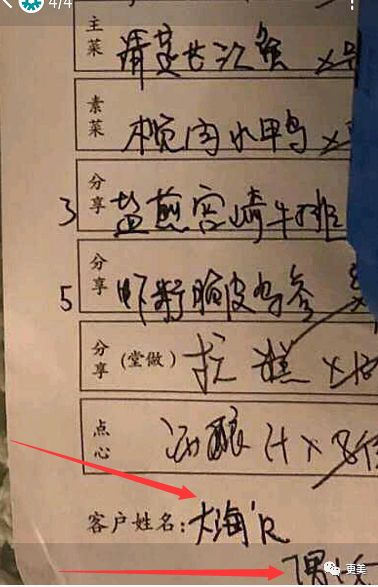 4/4
主菜 清蒸长江蟹 x
素菜 榄肉水甲鸟 x
3 分享 盐煎宫崎牛排
5 分享 虾籽脆皮乌参
分享 (堂做) 拉糕 x10
点心 酒酿 汁 x 8
客户姓名: 大海'R
更美